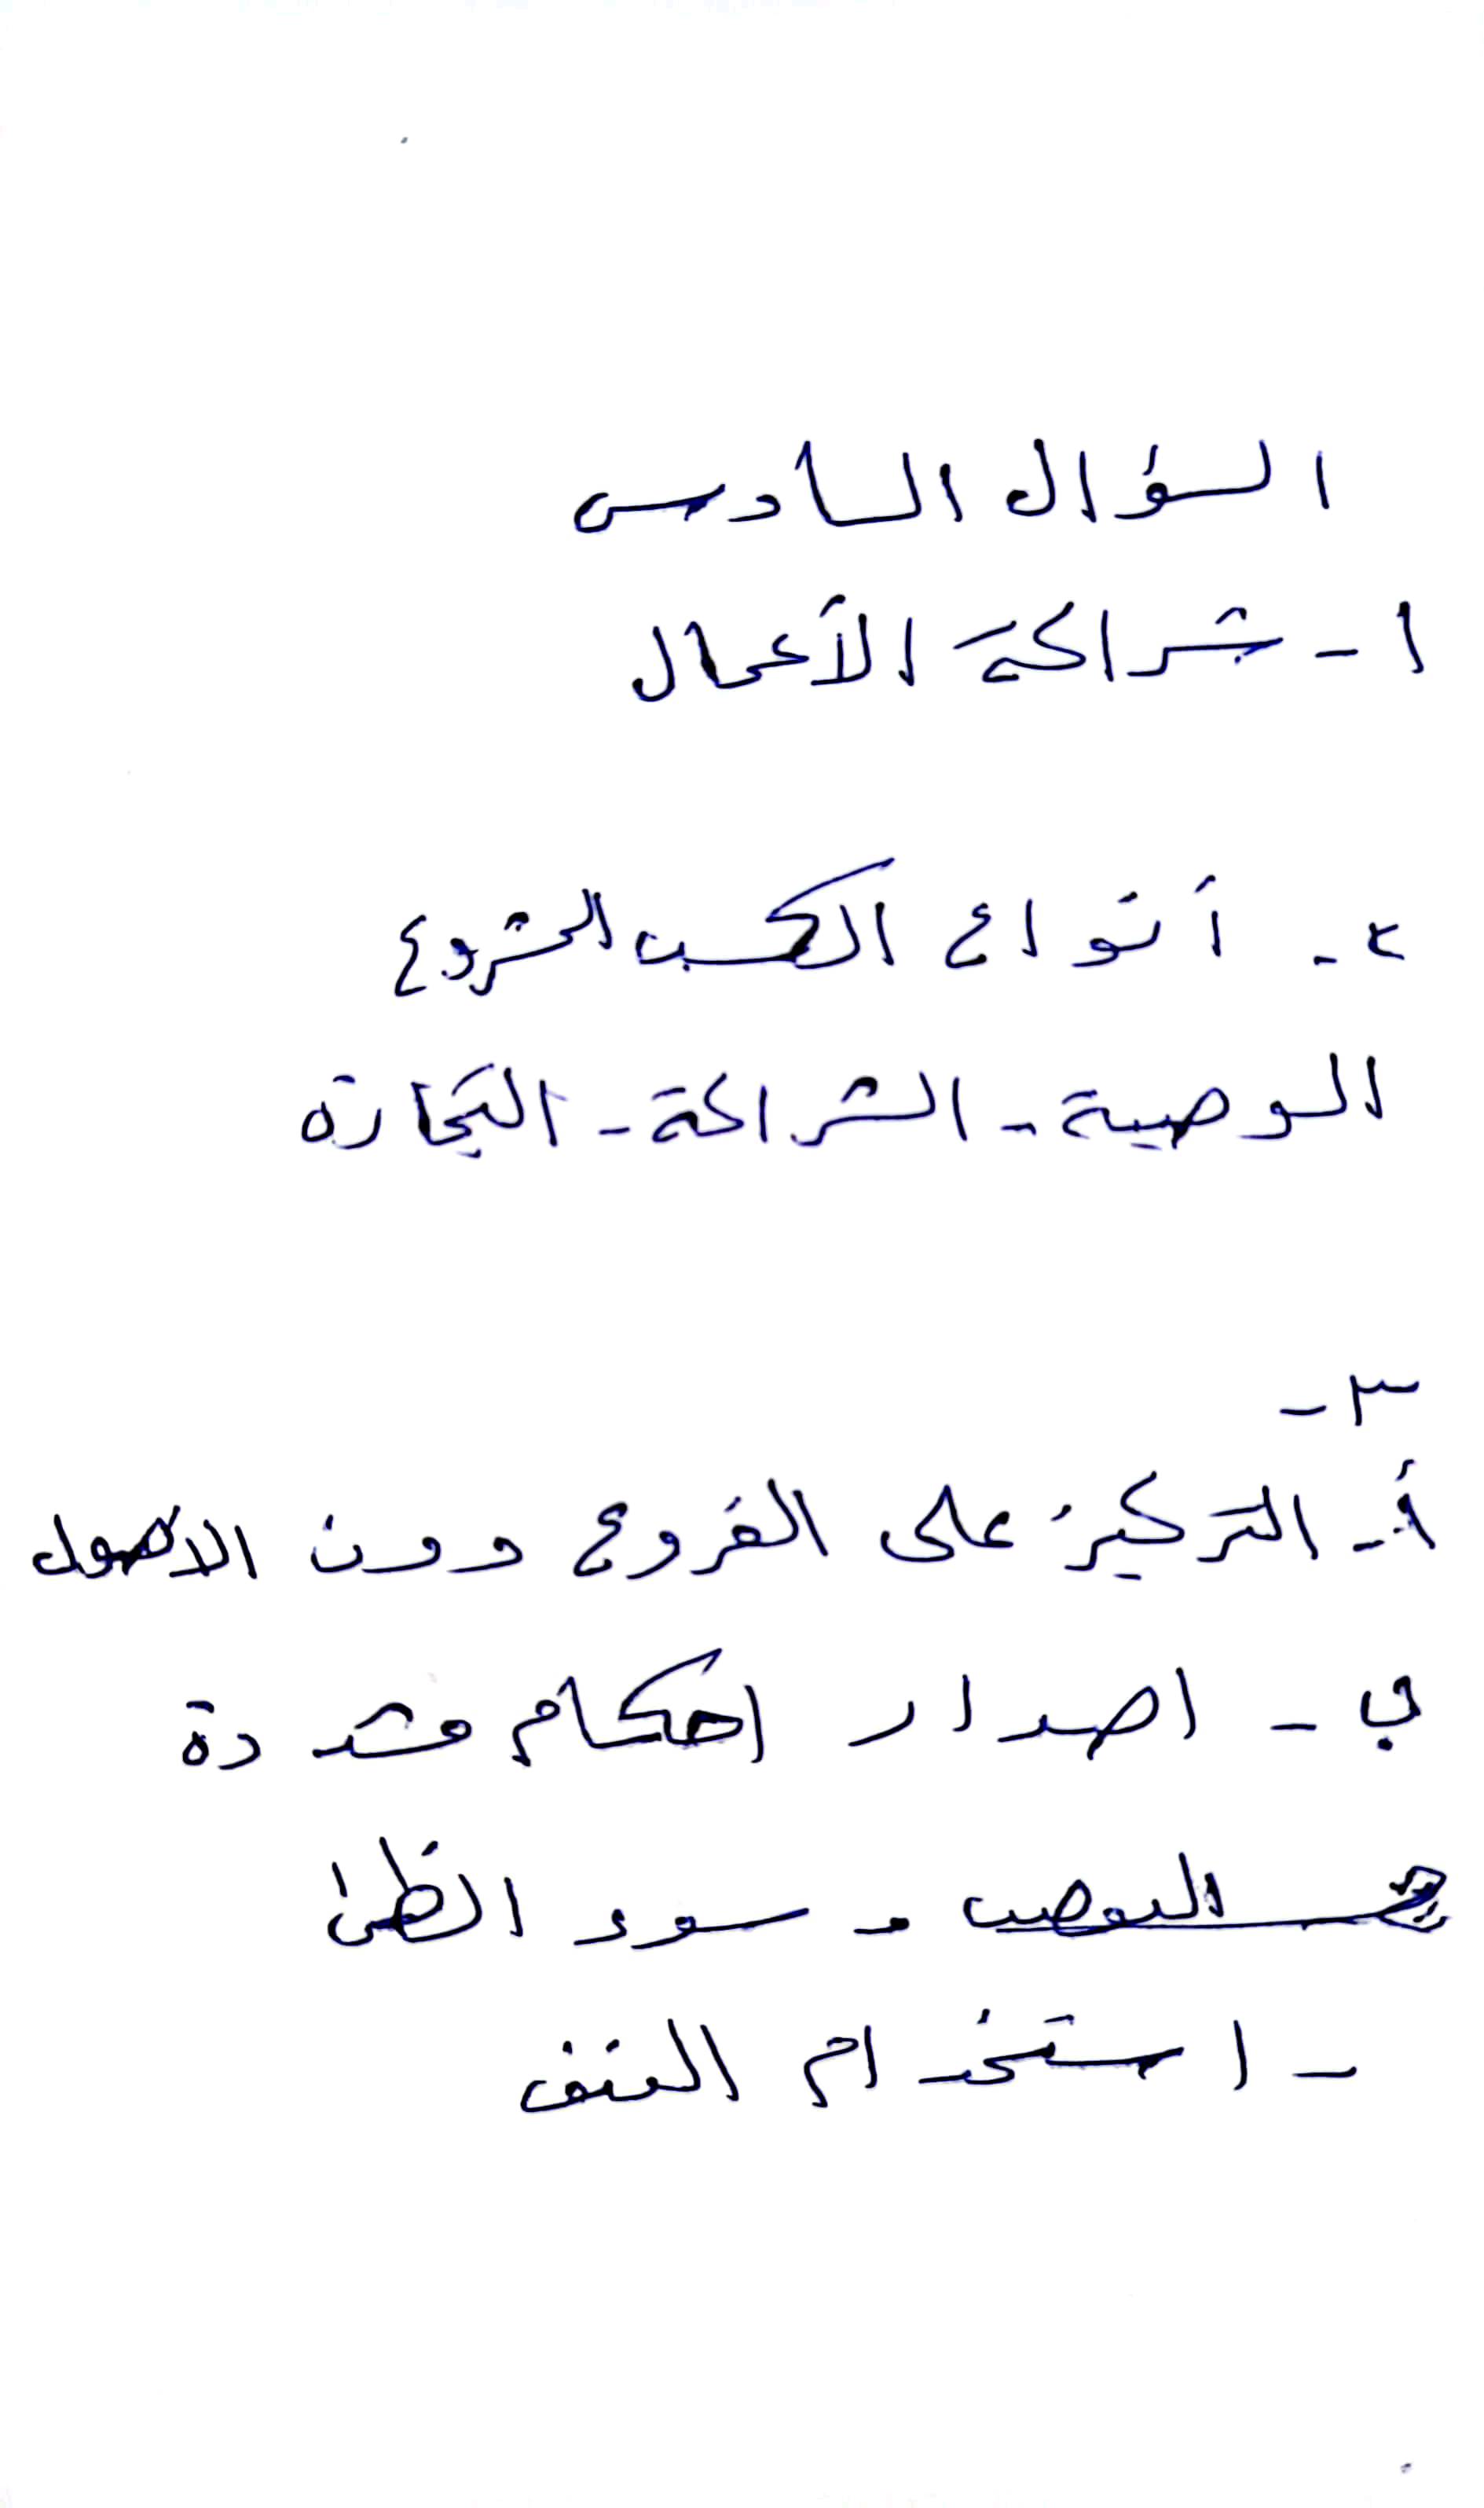 السؤال السادس
١ - شراكة الأعمال
٢ - أنواع الكسب المشروع
الوصية - الشراكة - التجارة
٣ -
أ - التركيز على الفروع دون الاصول
ب - اصدار احكام مشددة
التعصب - سوء الظن
- استخدام العنف